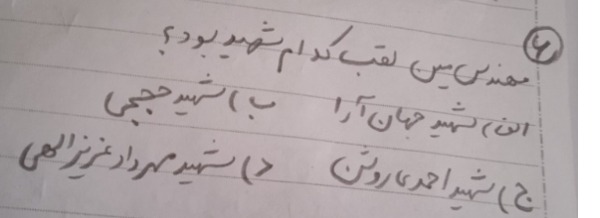 ۶) مهندس مین لقب کدام شهید بود؟
الف) شهید جهان آرا ب) شهید حججی
ج) شهید احمدی روشن د) شهید مهرداد عزیزالهی